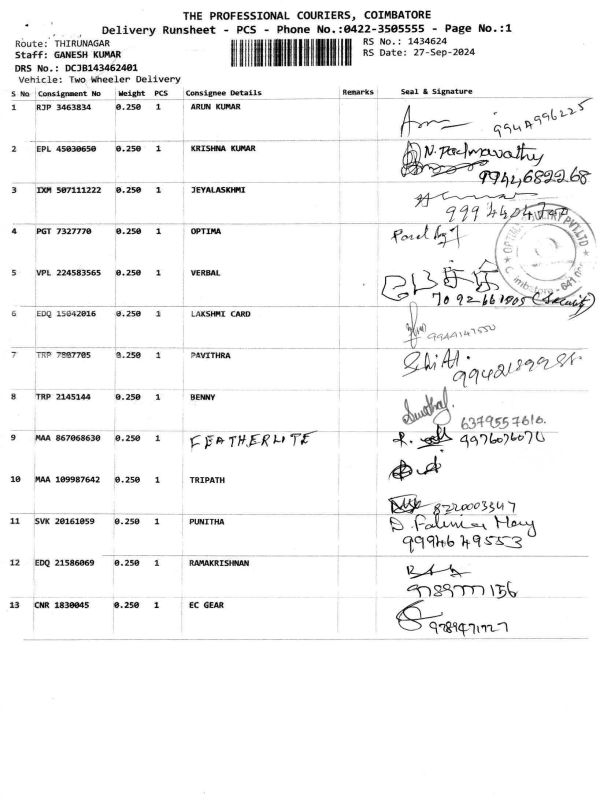 THE PROFESSIONAL COURIERS, COIMBATORE
Delivery Runsheet - PCS - Phone No.:0422-3505555 - Page No.:1
Route: THIRUNAGAR RS No.: 1434624
Staff: GANESH KUMAR RS Date: 27-Sep-2024
DRS No.: DCJB143462401
Vehicle: Two Wheeler Delivery
S No Consignment No Weight PCS Consignee Details Remarks Seal & Signature
1 RJP 3463834 0.250 1 ARUN KUMAR
2 EPL 45030650 0.250 1 KRISHNA KUMAR N. Padmavathy
9944682268
3 IXM 507111222 0.250 1 JEYALASKHMI
4 PGT 7327770 0.250 1 OPTIMA
5 VPL 224583565 0.250 1 VERBAL
(Security)
6 EDQ 15042016 0.250 1 LAKSHMI CARD
9944147550
7 TRP 7807705 0.250 1 PAVITHRA
8 TRP 2145144 0.250 1 BENNY
6379557616.
9 MAA 867068630 0.250 1 FEATHERLITE 9976076070
10 MAA 109987642 0.250 1 TRIPATH
8220003347
11 SVK 20161059 0.250 1 PUNITHA
9994649553
12 EDQ 21586069 0.250 1 RAMAKRISHNAN
9789777156
13 CNR 1830045 0.250 1 EC GEAR
9789471727